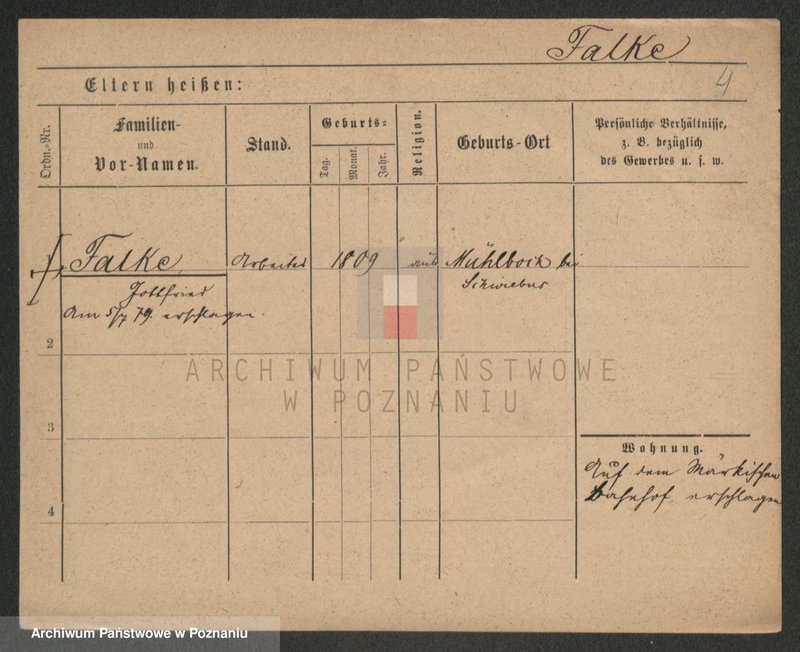 Falke
4
Eltern heißen:
Ordn.-Nr.
Familien-
und
Vor-Namen.
Stand.
Geburts-
Tag.
Monat.
Jahr.
Religion.
Geburts-Ort
Persönliche Verhältnisse,
z. B. bezüglich
des Gewerbes u. s. w.
Falke Arbeiter 1809 aus Mühlbock bei
Gottfried Schwiebus
Am 5/7 79. erschlagen.
2
3
4
Wohnung.
Auf dem Märkischen
Bahnhof erschlagen
ARCHIWUM PAŃSTWOWE
W POZNANIU
Archiwum Państwowe w Poznaniu